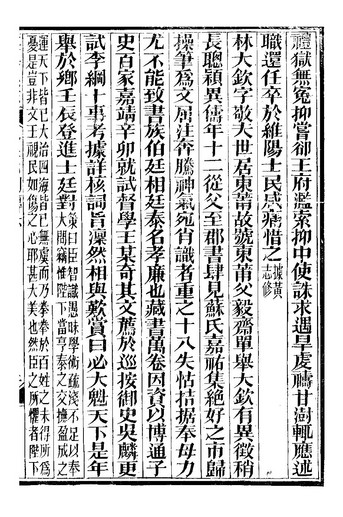 禮獄無冤抑嘗卻王府濫索抑中使誅求遇旱虔禱甘澍輒應述
職還任卒於維陽士民感痛惜之據黃
志修
林大欽字敬夫世居東莆故號東莆父毅齋單舉大欽有異徵稍
長聰穎異儔年十二從父至郡書肆見蘇氏嘉祐集絕好之市歸
操筆為文屈注奔騰神氣宛肖識者重之十八失怙拮据奉母力
尤不能致書族伯廷相廷泰名孝廉也藏書萬卷因資以博通子
史百家嘉靖辛卯就試督學王某奇其文薦於巡按御史吳麟更
試李綱十事考據詳核詞旨凜然相與歎賞曰必大魁天下是年
舉於鄉壬辰登進士廷對策曰臣智識愚昧學術疏淺不足以奉
大問竊惟陛下當亨泰之交撫盈成之
運天下皆已大治四海皆已無虞而乃拳拳於百姓之未得所為
憂是豈非文王視民如傷之心耶甚大美也然臣之所懼者陛下